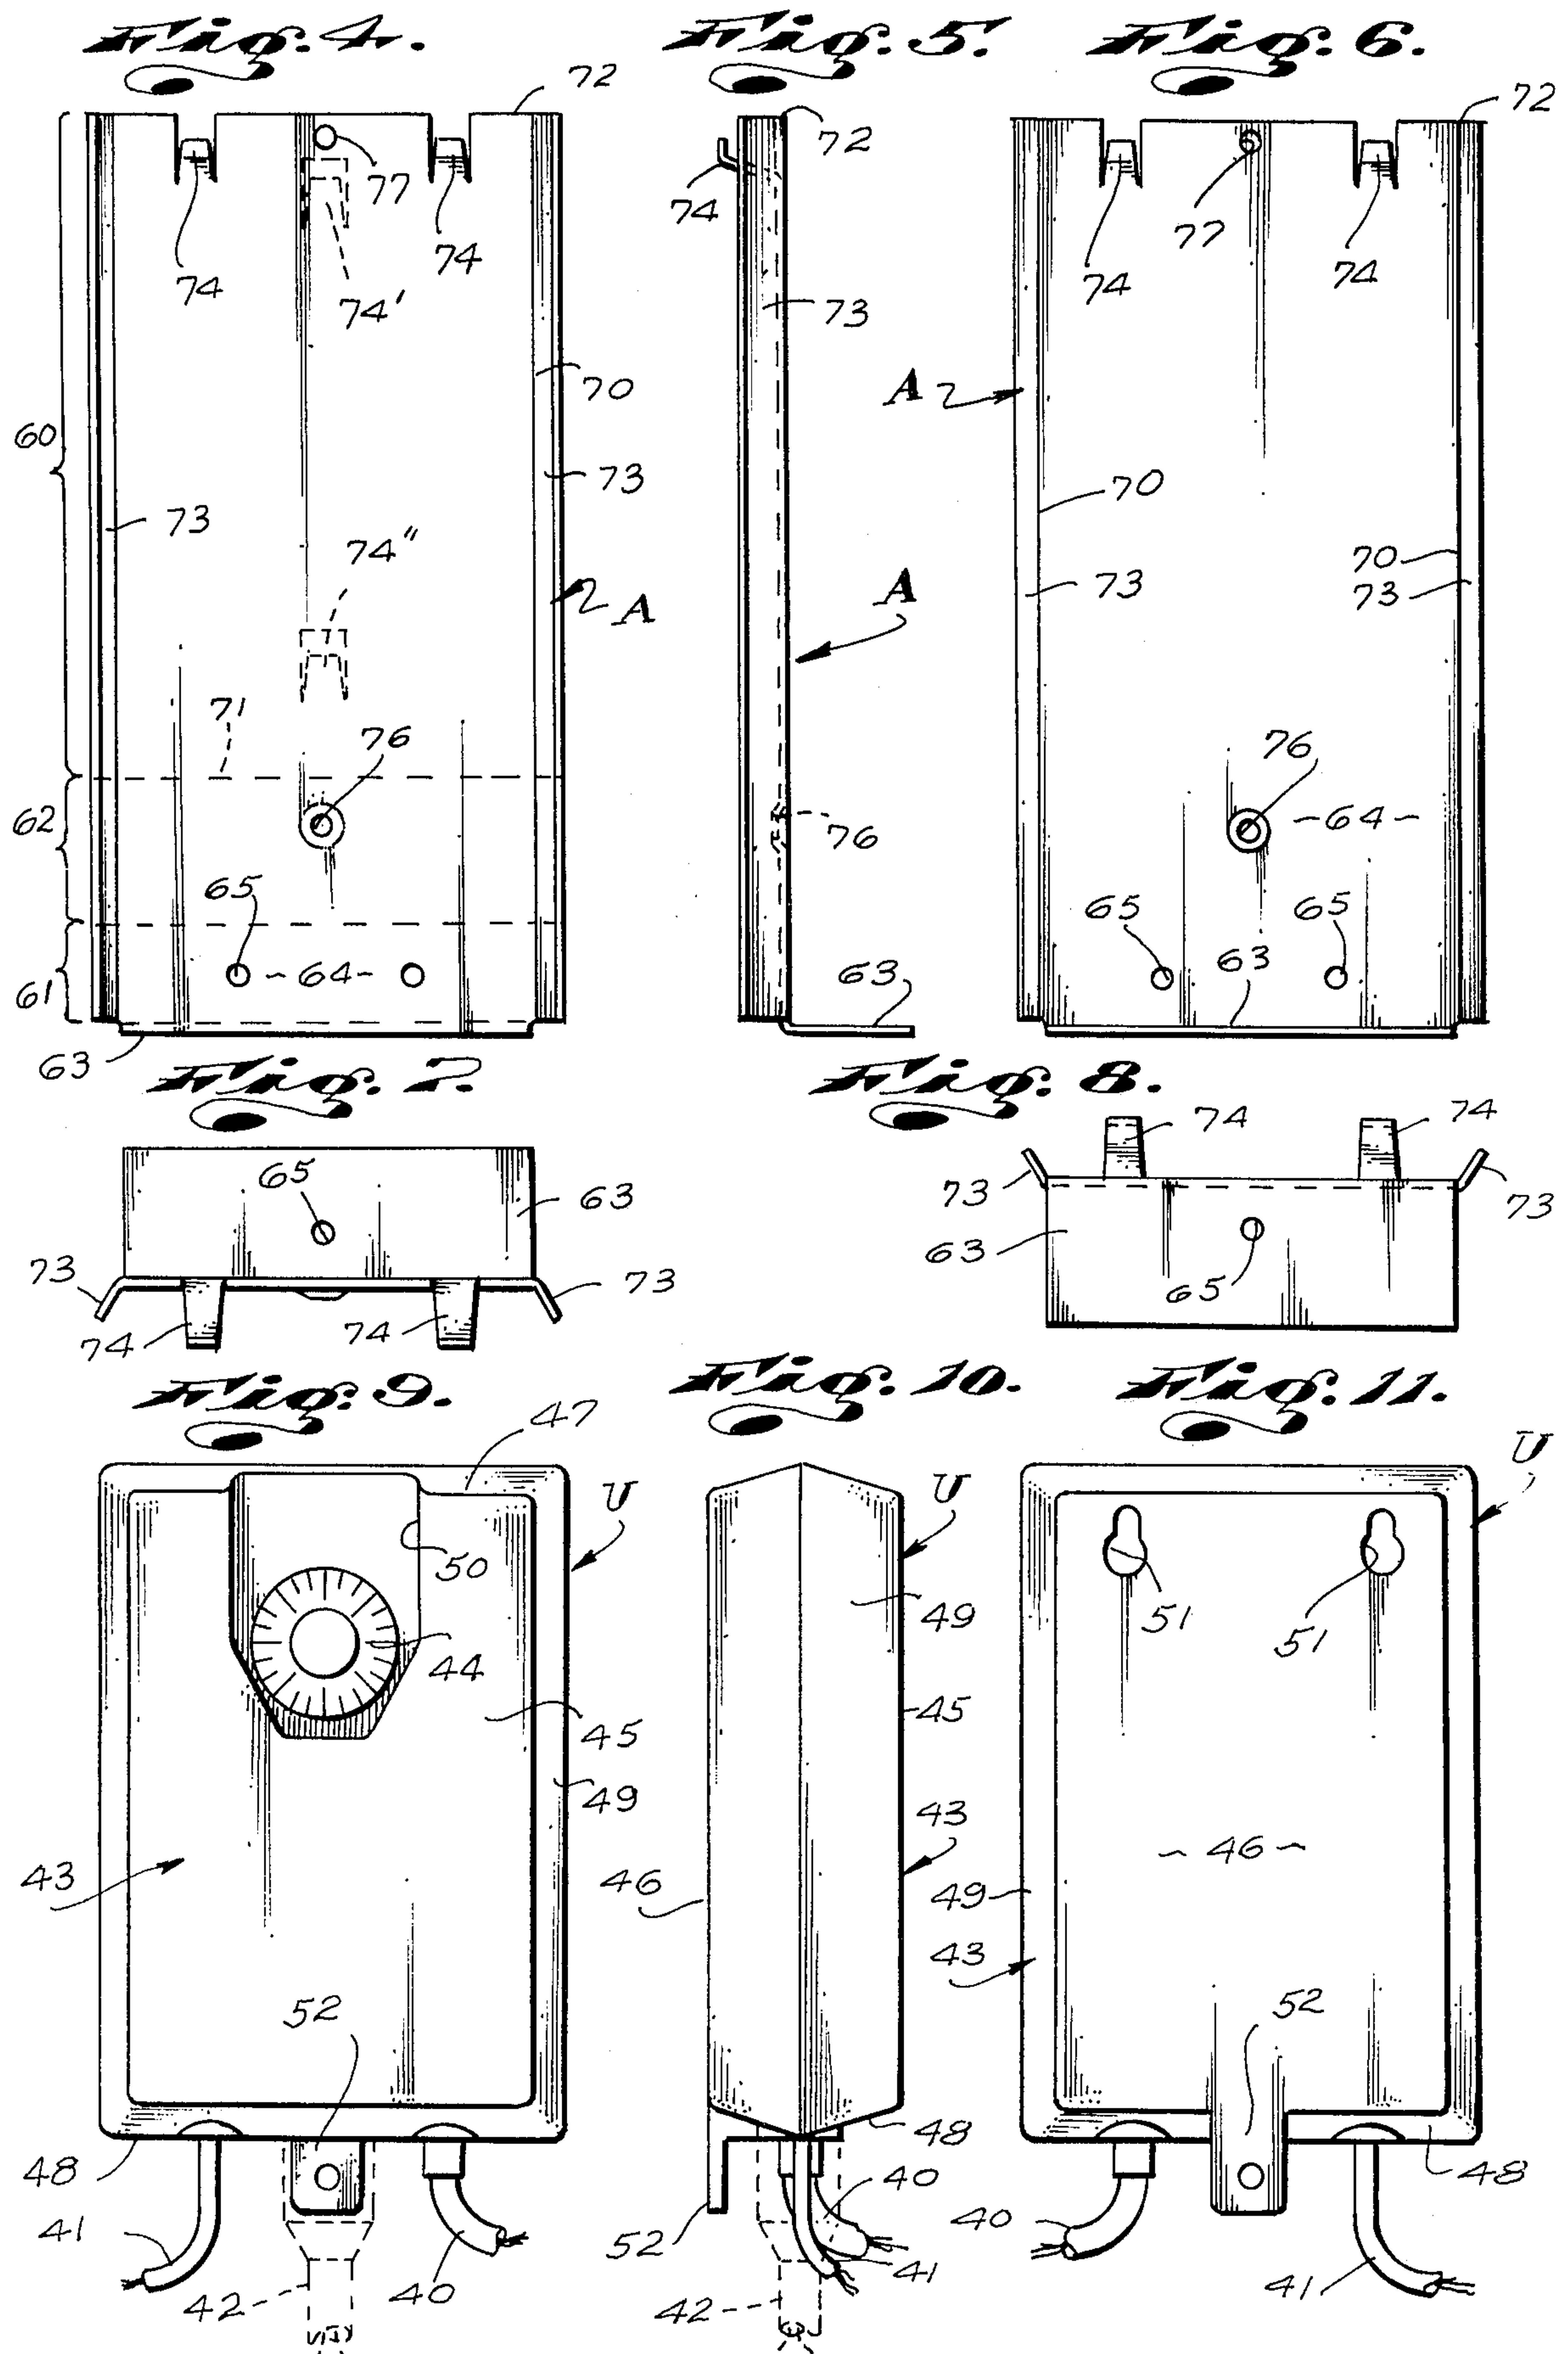 Fig. 4.
72
77
74
74
74'
70
60
73
73
74"
A
71
76
62
65
61
~64~
63
Fig. 5.
72
74
73
A
76
63
Fig. 6.
72
77
74
74
A
70
73
70
73
76
~64~
65
65
63
Fig. 7.
65
63
73
73
74
74
Fig. 8.
74
74
73
73
63
65
Fig. 9.
47
U
50
44
45
49
43
52
48
41
42
40
Fig. 10.
U
49
45
43
46
48
40
52
41
42
Fig. 11.
U
51
51
~46~
49
43
52
48
40
41